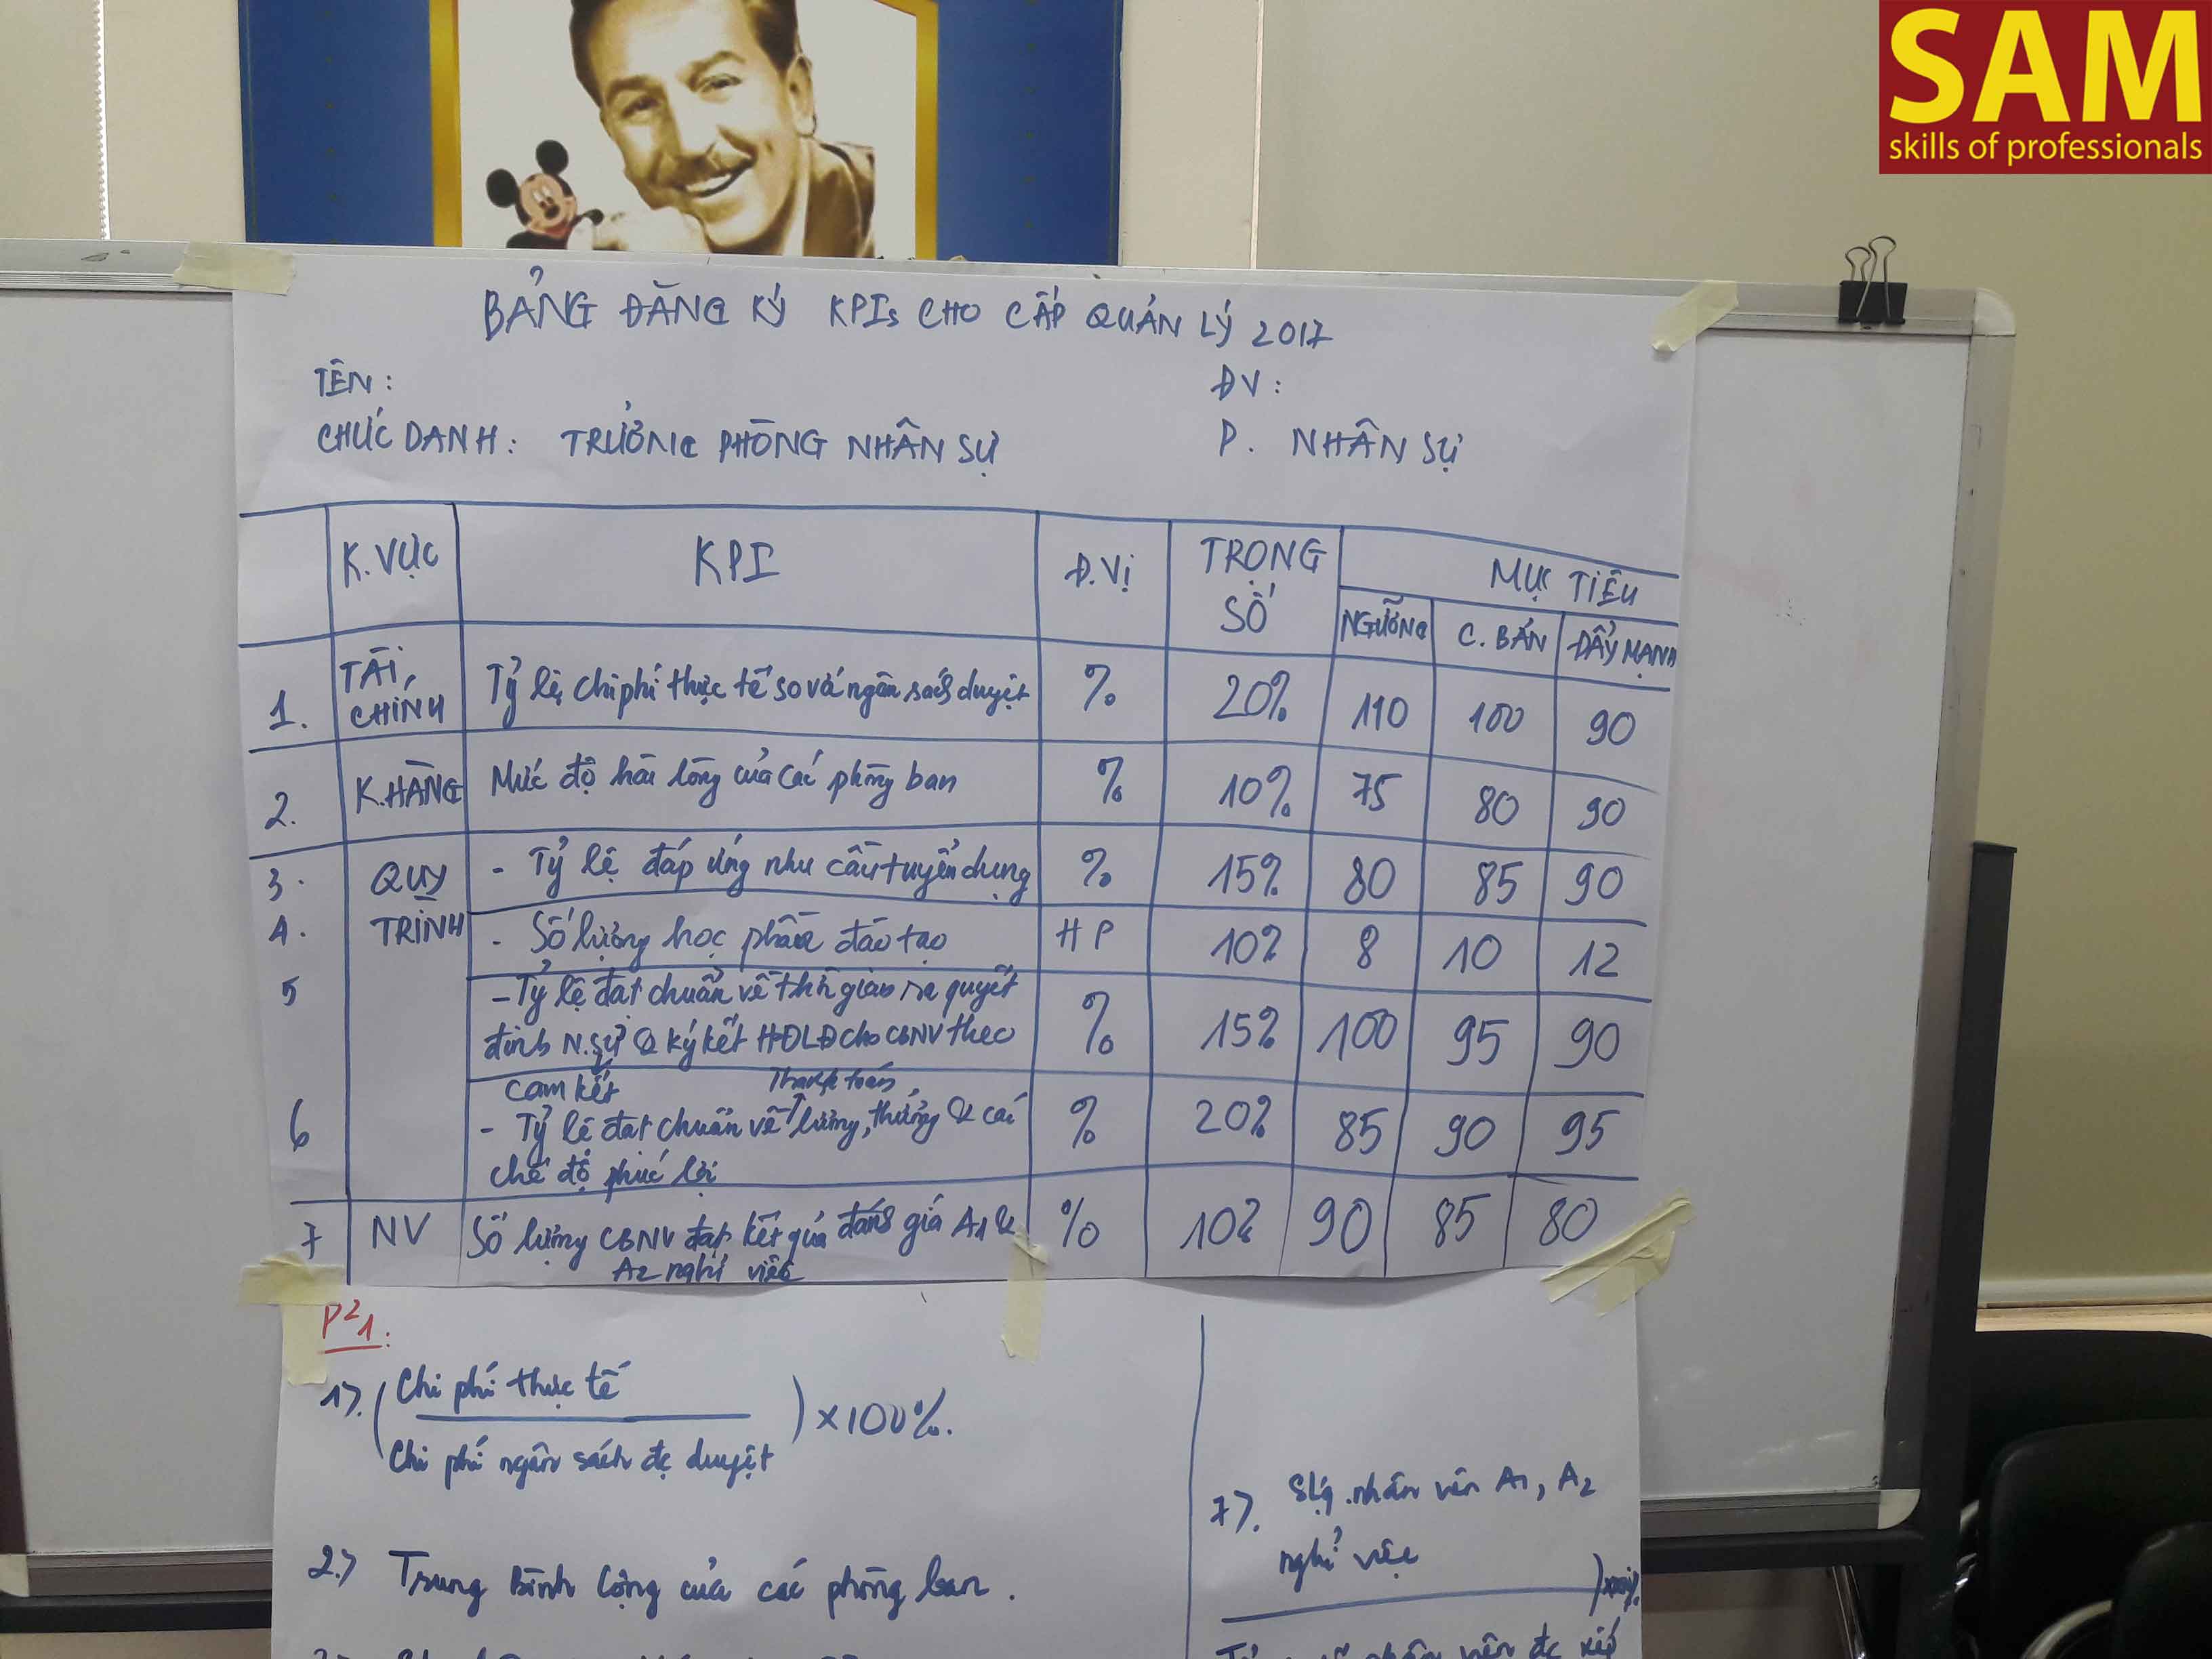 SAM
skills of professionals
BẢNG ĐĂNG KÝ KPIs CHO CẤP QUẢN LÝ 2017
TÊN : ĐV :
CHỨC DANH : TRƯỞNG PHÒNG NHÂN SỰ P. NHÂN SỰ
K.VỰC KPI Đ.Vị TRỌNG SỐ MỤC TIÊU
NGƯỠNG C. BẢN ĐẨY MẠNH
1. TÀI CHÍNH Tỷ lệ chi phí thực tế so với ngân sách duyệt % 20% 110 100 90
2. K.HÀNG Mức độ hài lòng của các phòng ban % 10% 75 80 90
3. QUY - Tỷ lệ đáp ứng nhu cầu tuyển dụng % 15% 80 85 90
4. TRÌNH - Số lượng học phần đào tạo HP 10% 8 10 12
5 - Tỷ lệ đạt chuẩn về thời gian ra quyết
định N.sự & ký kết HĐLĐ cho CBNV theo % 15% 100 95 90
cam kết Thanh toán
6 - Tỷ lệ đạt chuẩn về lương, thưởng & các % 20% 85 90 95
chế độ phúc lợi
7 NV Số lượng CBNV đạt kết quả đánh giá A1 & % 10% 90 85 80
A2 nghỉ việc
P²1:
1>. (Chi phí thực tế
Chi phí ngân sách đc duyệt) x100%.
2.> Trung bình cộng của các phòng ban .
7>. Slg .nhân viên A1, A2
nghỉ việc